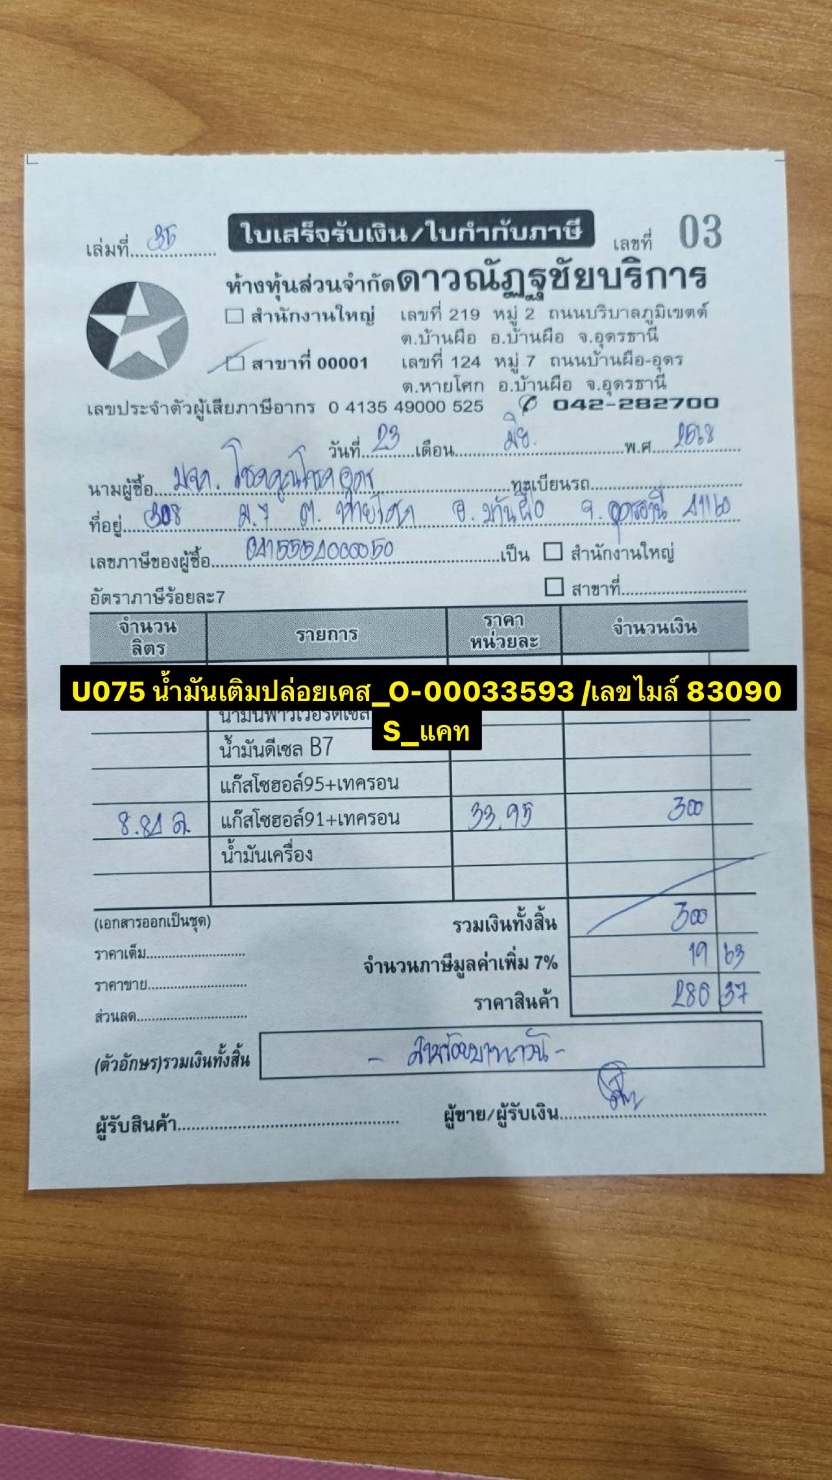 เล่มที่ 35 ใบเสร็จรับเงิน/ใบกำกับภาษี เลขที่ 03
ห้างหุ้นส่วนจำกัดดาวณัฏฐชัยบริการ
สำนักงานใหญ่ เลขที่ 219 หมู่ 2 ถนนบริบาลภูมิเขตต์
ต.บ้านผือ อ.บ้านผือ จ.อุดรธานี
สาขาที่ 00001 เลขที่ 124 หมู่ 7 ถนนบ้านผือ-อุดร
ต.หายโศก อ.บ้านผือ จ.อุดรธานี
เลขประจำตัวผู้เสียภาษีอากร 0 4135 49000 525 042-282700
วันที่ 23 เดือน มิย. พ.ศ 2568
นามผู้ชื้อ บจก. โชคคูณโชค อุดร ทะเบียนรถ
ที่อยู่ 308 ม.7 ต. หายโศก อ. บ้านผือ จ. อุดรธานี 41160
เลขภาษีของผู้ซื้อ 0415554000050 เป็น สำนักงานใหญ่
อัตราภาษีร้อยละ7 สาขาที่
จำนวนลิตร รายการ ราคาหน่วยละ จำนวนเงิน
U075 น้ำมันเติมปล่อยเคส_O-00033593 /เลขไมล์ 83090
S_แคท
น้ำมันดีเซล B7
แก๊สโซฮอล์95+เทครอน
8.84 ล. แก๊สโซฮอล์91+เทครอน 33.95 300
น้ำมันเครื่อง
(เอกสารออกเป็นชุด) รวมเงินทั้งสิ้น 300
ราคาเต็ม จำนวนภาษีมูลค่าเพิ่ม 7% 19 63
ราคาขาย ราคาสินค้า 280 37
ส่วนลด
(ตัวอักษร)รวมเงินทั้งสิ้น - สามร้อยบาทถ้วน -
ผู้รับสินค้า ผู้ขาย/ผู้รับเงิน